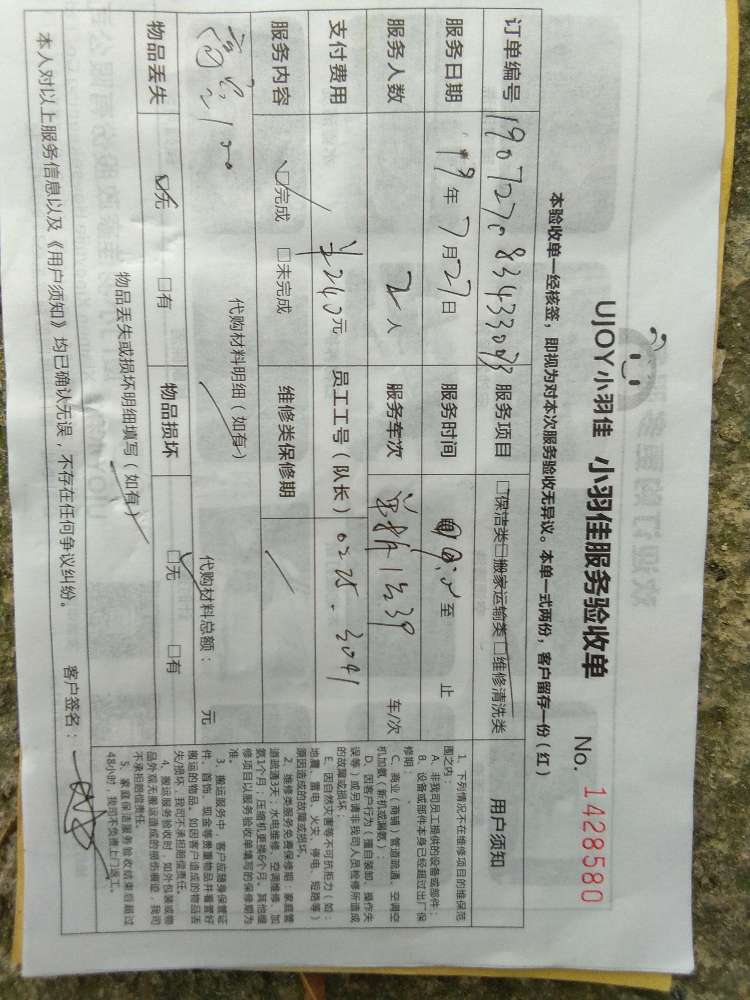 UJOY小羽佳 小羽佳服务验收单
No. 1428580
本验收单一经核签，即视为对本次服务验收无异议。本单一式两份，客户留存一份（红）
订单编号
服务项目 □保洁类□搬家运输类□维修清洗类
服务日期 19年7月27日
服务时间 至 止
服务人数 2人
服务车次 车/次
支付费用 ¥240元
员工工号（队长） 0225. 3041
服务内容 □完成 □未完成
维修类保修期
代购材料明细（如有）
代购材料总额： 元
物品丢失 □无 □有
物品损坏 □无 □有
物品丢失或损坏明细填写（如有）
本人对以上服务信息以及《用户须知》均已确认无误，不存在任何争议纠纷。 客户签名：
用户须知
1、下列情况不在维修项目的维保范
围之内：
A、非我司员工提供的设备或部件；
B、设备或部件本身已经超过出厂保
修期；
C、商业（商铺）管道疏通、空调空
机加氨（新机或漏氨）；
D、因客户行为（擅自装卸、操作失
误等）或另请非我司人员检修所造成
的故障或损坏；
E、因自然灾害等不可抗拒力（如：
地震、雷电、火灾、停电、短路等）
原因造成的故障或损坏。
2、维修类服务免费保修期：家庭管
道疏通3天；水电维修、空调维修、加
氨1个月；压缩机更换6个月。其他维
修项目以服务验收单填写的保修期为
准。
3、搬运服务中，客户应随身保管证
件、首饰、现金等贵重物品并看管好
搬运的物品。如因客户造成的物品丢
失/损坏，我司不承担赔偿责任。
4、搬运服务验收时，如外包装或物
品外观无搬运造成的损伤痕迹，我司
不承担赔偿责任。
5、家庭保洁服务验收结束后超过
48小时，我司不负责上门返工。